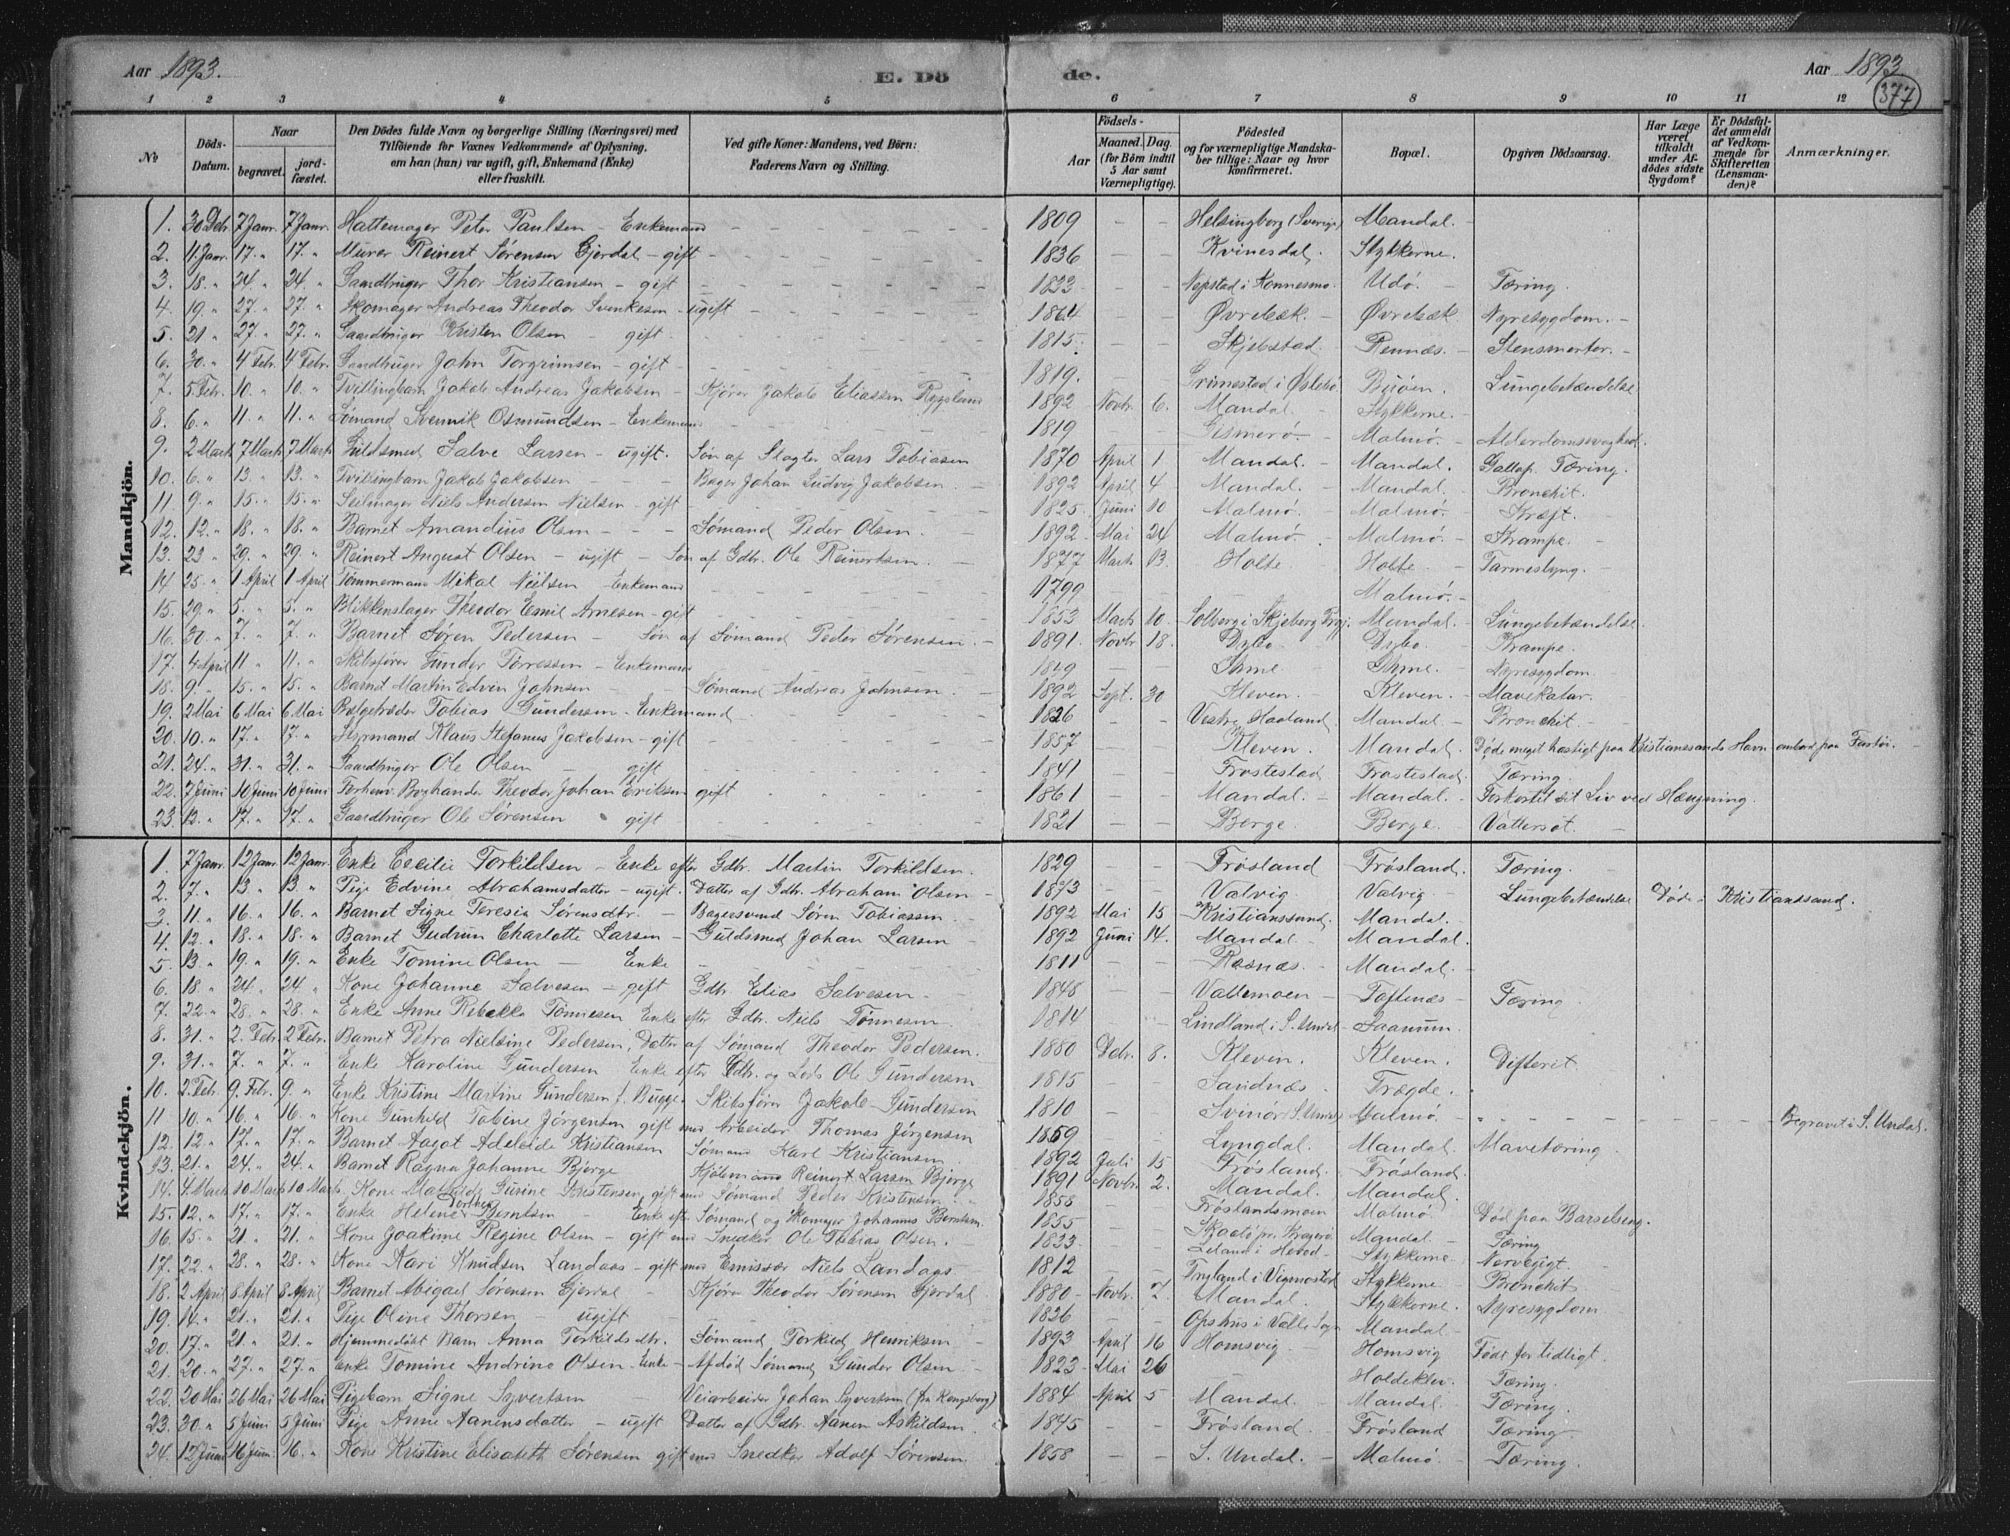 Aar 1893.
E. Dö
de.
Aar 1893
377
1 2 3 4 5 6 7 8 9 10 11 12
No
Döds-Datum.
Naar
begravet.
jord-fæstet.
Den Dödes fulde Navn og borgerlige Stilling (Næringsvei) med Tilföiende for Voxnes Vedkommende af Oplysning, om han (hun) var ugift, gift, Enkemand (Enke) eller fraskilt.
Ved gifte Koner: Mandens, ved Börn: Faderens Navn og Stilling.
Födsels-
Aar
Maaned. Dag.
(for Börn indtil 5 Aar samt Værnepligtige).
Födested og for værnepligtige Mandskaber tillige: Naar og hvor konfirmeret.
Bopæl.
Opgiven Dödsaarsag.
Har Læge været tilkaldt under Afdödes sidste Sygdom?
Er Dödsfaldet anmeldt af Vedkommende for Skifteretten (Lensmanden)?
Anmærkninger.
Mandkjön.
1. 30 Dcbr. 7 Janr. 7 Janr. Hattemager Peter Paulsen – Enkemand 1809 – – Helsingborg (Sverige) Mandal. –
2. 11 Janr. 17. " 17. " Murer Reinert Sørensen Gjerdal – gift 1836 – – Kvinesdal. Stykkerne.
3. 18. " 24. " 24. " Gaardbruger Thor Kristiansen – gift 1833 – – Udø. – Tæring.
4. 19. " 27. " 27. " Skomager Andreas Theodor Svenkesen – ugift 1864 – – Øvrebæk. – Øvrebæk. Nyresygdom. –
5. 21 " 27 " 27. " Gaardbruger Kristen Olsen – gift. 1815. – – Skjebstad. Rennæs. –
6. 30. " 4 Febr. 4 Febr. Gaardbruger John Torgrimsen – gift – 1819. – – Grimestad i Øslebø Buøen. Lungebetændelse
7. 5 Febr. 10. " 10. " Tvillingbarn Jakob Andreas Jakobsen – Kjører Jakob Eliassen 1892 Novbr. 6. Mandal – Stykkerne. –
8. 6. " 11. " 11. " Sømand Osmundsen – Enkemand 1819 – – Gismerø. – Malmø. – Alderdomssvaghed.
9. 2 Marts 7 Marts 7 Marts Guldsmed Salve Larsen – ugift. Søn af Slagter Lars Tobiasen 1870 April 1 Mandal. – Mandal. Gallop. Tæring.
10. 6. " 13. " 13. " Tvillingbarn Jakob Jakobsen – Bager Johan Ludvig Jakobsen. – 1892 April 4 Mandal. – Mandal. Bronchit.
11. 9. " 15. " 15. " Seilmager Niels Andersen Nielsen – gift 1825. Juni 10 Malmø. – Malmø. Kræft.
12. 12. " 18. " 18. " Barnet Amandius Olsen – Sømand Peder Olsen – 1892 Mai 24 Malmø. – Malmø. – Krampe.
13. 23 " 29. " 29. " Reinert August Olsen – ugift – Søn af Gdbr. Ole Reinertsen. – 1877 Marts 13. Holte. – Holte – Tarmeslyng. –
14 25. " 1 April 1 April Tømmermand Mikal Nielsen Enkemand 1799 – – Malmø. –
15. 29. " 5. " 5. " Blikkenslager Theodor Emil Arnesen – gift 1853 Marts 10. Solberg i Skjeberg Prgj. Mandal. – Lungebetændelse.
16. 30. " 7. " 7. " Barnet Søren Pedersen – Søn af Sømand Peder Sørensen. – 1891. Novbr 18. Dybo – Dybo – Krampe.
17. 4 April 11 " 11. " Skibsfører Gunder Torressen – Enkemand 1849 – – Ihme. – Ihme. – Nyresygdom.
18. 9. " 15. " 15. " Barnet Martin Edvin Johnsen – Sømand Andreas Johnsen. – 1892 Sept. 30 Kleven. – Kleven. – Mavekatar.
19. 2 Mai 6 Mai 6 Mai Bælgetræder Tobias Gundersen – Enkemand 1826 – – Vestre Haaland. Mandal. – Bronchit. –
20. 10. " 17. " 17. " Styrmand Klaus Stefanus Jakobsen – gift 1857 – – Kleven. Mandal. Døde meget hastigt paa Kristianssands Havn ombord paa
21. 24. " 31. " 31. " Gaardbruger Ole Olsen – gift 1841 – – Frostestad Frostestad. Tæring.
22. 7 Juni 10 Juni 10 Juni Forhenv. Boghandler Theodor Johan Eriksen gift 1861 – – Mandal. – Mandal. – Forkortet sit Liv ved Hængning.
23. 12. " 17. " 17. " Gaardbruger Ole Sørensen gift 1821 – – Berge. Berge. – Vattersot. –
Kvindekjön.
1. 7 Janr. 12 Janr. 12 Janr. Enke Cecilie Torkildsen – Enke efter Gdbr. Martin Torkildsen. 1829 – – Frøsland Frøsland. Tæring.
2. 7. " 13. " 13. " Pige Edvine Abrahamsdatter – ugift. Datter af Gdbr. Abraham Olsen – 1873 – – Valvig Valvig – Lungebetændelse Døde i Kristianssand.
3. 11. " 16. " 16. " Barnet Signe Teresia Sørensdtr. – Bagersvend Søren Tobiassen. – 1892 Mai 15 Kristianssand. Mandal. –
4. 12. " 18. " 18. " Barnet Gudrun Charlotte Larsen – Guldsmed Johan Larsen – 1892 Juni 14. Mandal – Mandal.
5. 13. " 19. " 19. " Enke Tomine Olsen – Enke 1811 – – Rosnæs. – Mandal. –
6. 18 " 24. " 24 " Kone Johanne Salvesen – gift Gdbr. Elias Salvesen – 1848 – – Vallemoen – Toftenæs – Tæring
7. 22. " 28. " 28. " Enke Anne Rebekka Tønnesen Enke efter Gdbr. Niels Tønnesen. 1814 – – Lindland i S. Undal – Saanum.
8. 31. " 2. Febr. 2 Febr. Barnet Petra Nielsine Pedersen, Datter af Sømand Theodor Pedersen. – 1880 Dcbr. 8. Kleven. Kleven. Difterit.
9. 31. " 7. " 7. " Enke Karoline Gundersen Enke efter Gdbr. og Lods Ole Gundersen 1815 – – Sandnæs – Trægde.
10. 2 Febr. 9 Febr. 9 " Enke Kristine Martine Gundersen f. Bugge. Skibsfører Jakob Gundersen 1810 – – Svinør (S. Undal) Malmø. Begravet i S. Undal.
11 10. " 16. " 16. " Kone Gunhild Tobine Jørgensen gift med Arbeider Thomas Jørgensen 1859 – – Lyngdal. Mandal. Mavetæring.
12. 12. " 17. " 17. " Barnet Aagot Adeleide Kristiansen Sømand Karl Kristiansen 1892 Juli 15 Frøsland. Frøsland.
13. 21. " 24. " 24. " Barnet Ragna Johanne Bjerge Kjøbmand Reinert Larsen Bjerge 1891 Novbr. 2. Mandal. Mandal.
14. 4 Marts 10 Marts 10 Marts Kone Mathilde Gusine Kristensen, gift med Sømand Peder Kristensen 1858 – – Frøslandsmoen Malmø. Død paa Barselseng.
15. 12. " 17. " 17. " Enke Helene Berntsen – Enke efter Sømand og Skomager Johannes Berntsen. 1855 – – Mandal – Tæring
16. 15. " 21. " 21. " Kone Joakime Regine Olsen – gift med Snedker Ole Tobias Olsen. – 1833 – – Stykkerne – Nervegigt.
17. 22. " 28. " 28. " Kone Kari Knudsen Landaas – gift med Emissær Niels Landaas 1812 – – Tryland i Vigmostad Stykkerne – Bronchit.
18. 2 April 8 April 8 April Barnet Abigael Sørensen Gjerdal – Kjører Theodor Sørensen Gjerdal. 1880 – Novbr. 7. Mandal. Stykkerne. Nyresygdom
19. 14. " 21. " 21. " Pige Oline Thorsen – ugift – 1836 – – Mandal –
20. 17. " 21 " 21. " Hjemmedøbt Barn Anna Torkildsdtr. Sømand Torkild Henriksen 1893 April 16 Homsvig – Homsvig Født for tidligt.
21. 20. " 27. " 27. " Enke Tomine Andrine Olsen. Enke – Afdød Sømand Gunder Olsen – 1823 – Mai 26 Holdeklev. Tæring.
22. 20 Mai 26 Mai 26 Mai Pigebarn Signe Syvertsen Veiarbeider Johan Syvertsen (fra Kongsberg) 1884 April 5 Mandal – Mandal. Tæring.
23. 30. " 5 Juni 5 Juni Pige Anne Aanensdatter – ugift Datter af Gdbr. Aanen Askildsen. 1845 – – Frøsland. – Frøsland Tæring.
24. 12 Juni 16 Juni. 16. " Kone Kristine Elisabeth Sørensen gift med Snedker Adolf Sørensen. 1858 – – S. Undal. – Malmø. – Tæring.